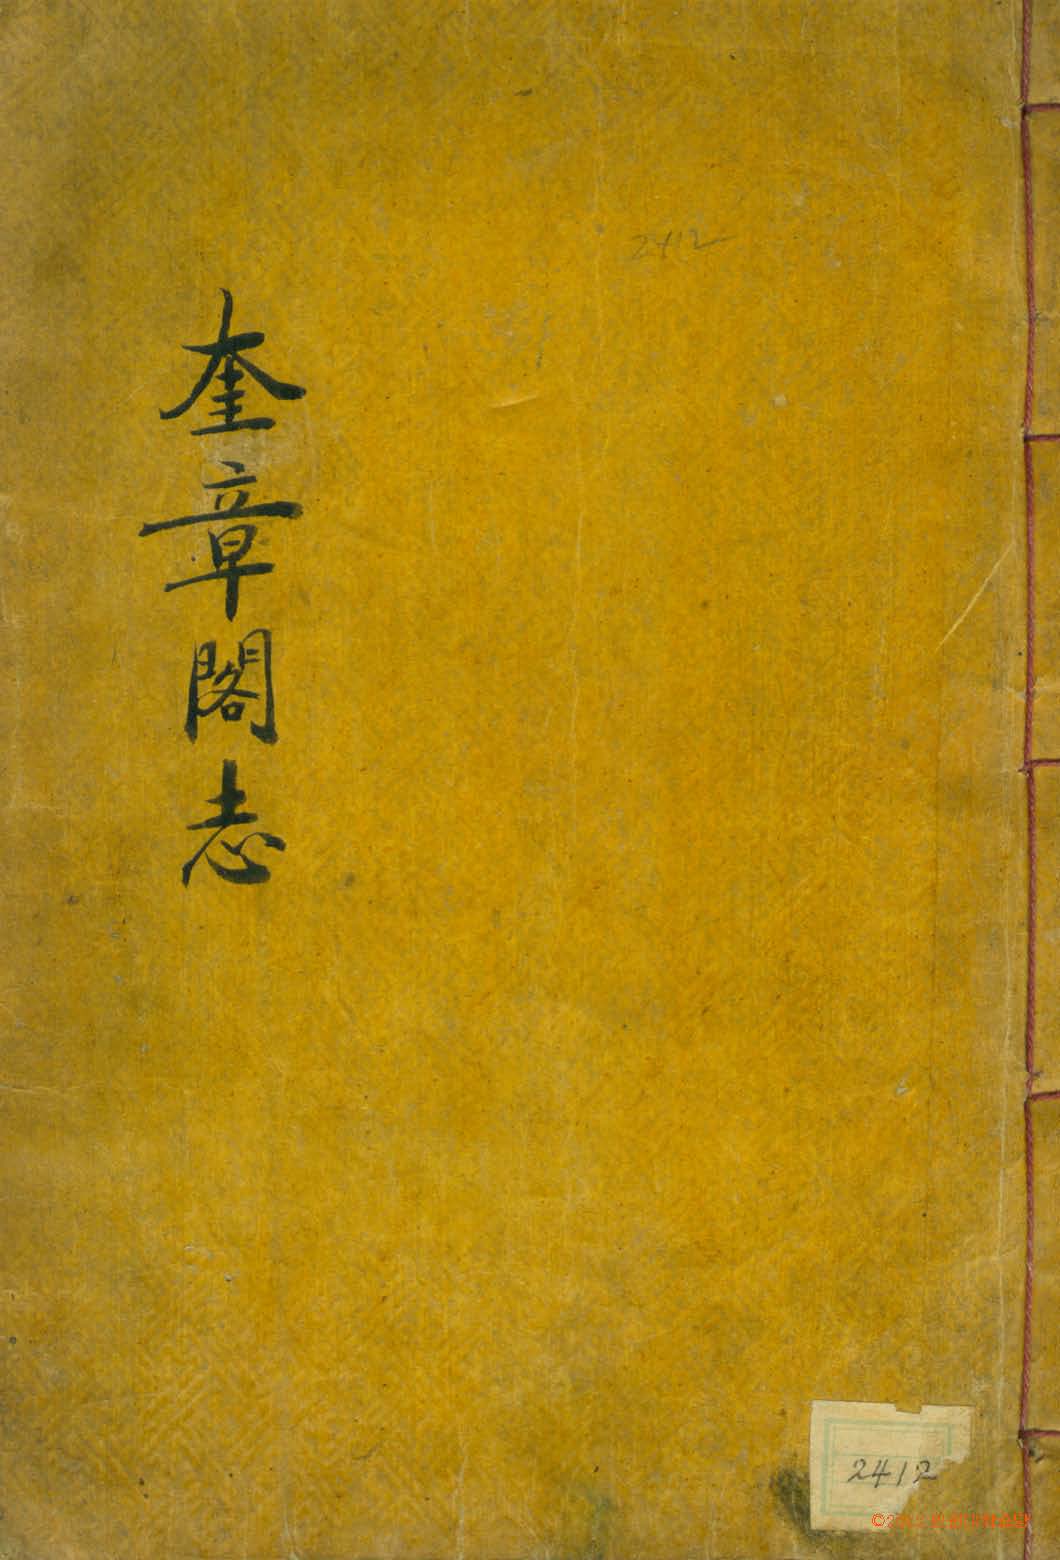 奎章閣志
2412
2412